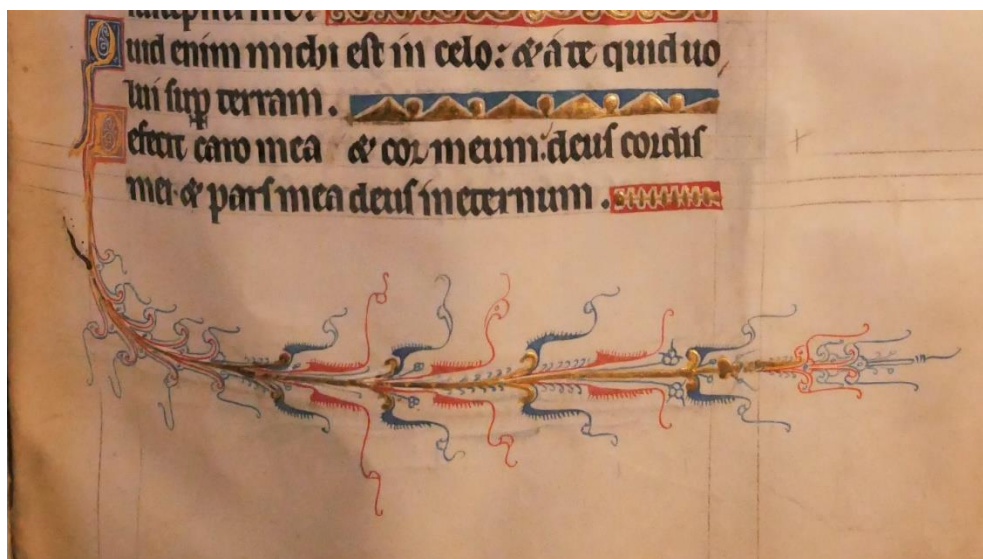 Quid enim michi est in celo: & a te quid uo
lui sup terram.
Defecit caro mea & cor meum: deus cordis
mei & pars mea deus in eternum.